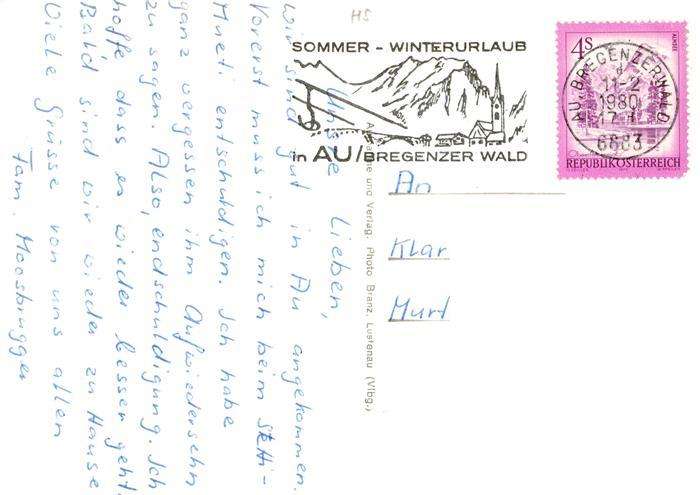 HS
SOMMER - WINTERURLAUB
in AU/BREGENZER WALD
4S
AU, BREGENZERWALD
11-2
1980
6883
REPUBLIK ÖSTERREICH
Lieben,
wir sind gut in Au angekommen.
Vorerst muss ich mich beim Stetti-
Mueti entschuldigen. Ich habe
ganz vergessen ihm Aufwiedersehn
zu sagen. Also, endschuldigung. Ich
hoffe dass es wieder besser geht.
Bald sind wir wieder zu Hause
Viele Grüsse von uns allen
Fam. Moosbrugger
und Verlag: Photo Branz, Lustenau (Vlbg.)
An
Klar
Murt